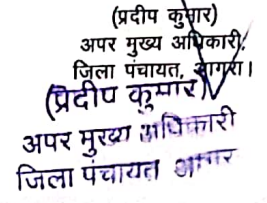 (प्रदीप कुमार)
अपर मुख्य अधिकारी,
जिला पंचायत, आगरा।
(प्रदीप कुमार)
अपर मुख्य अधिकारी
जिला पंचायत आगरा